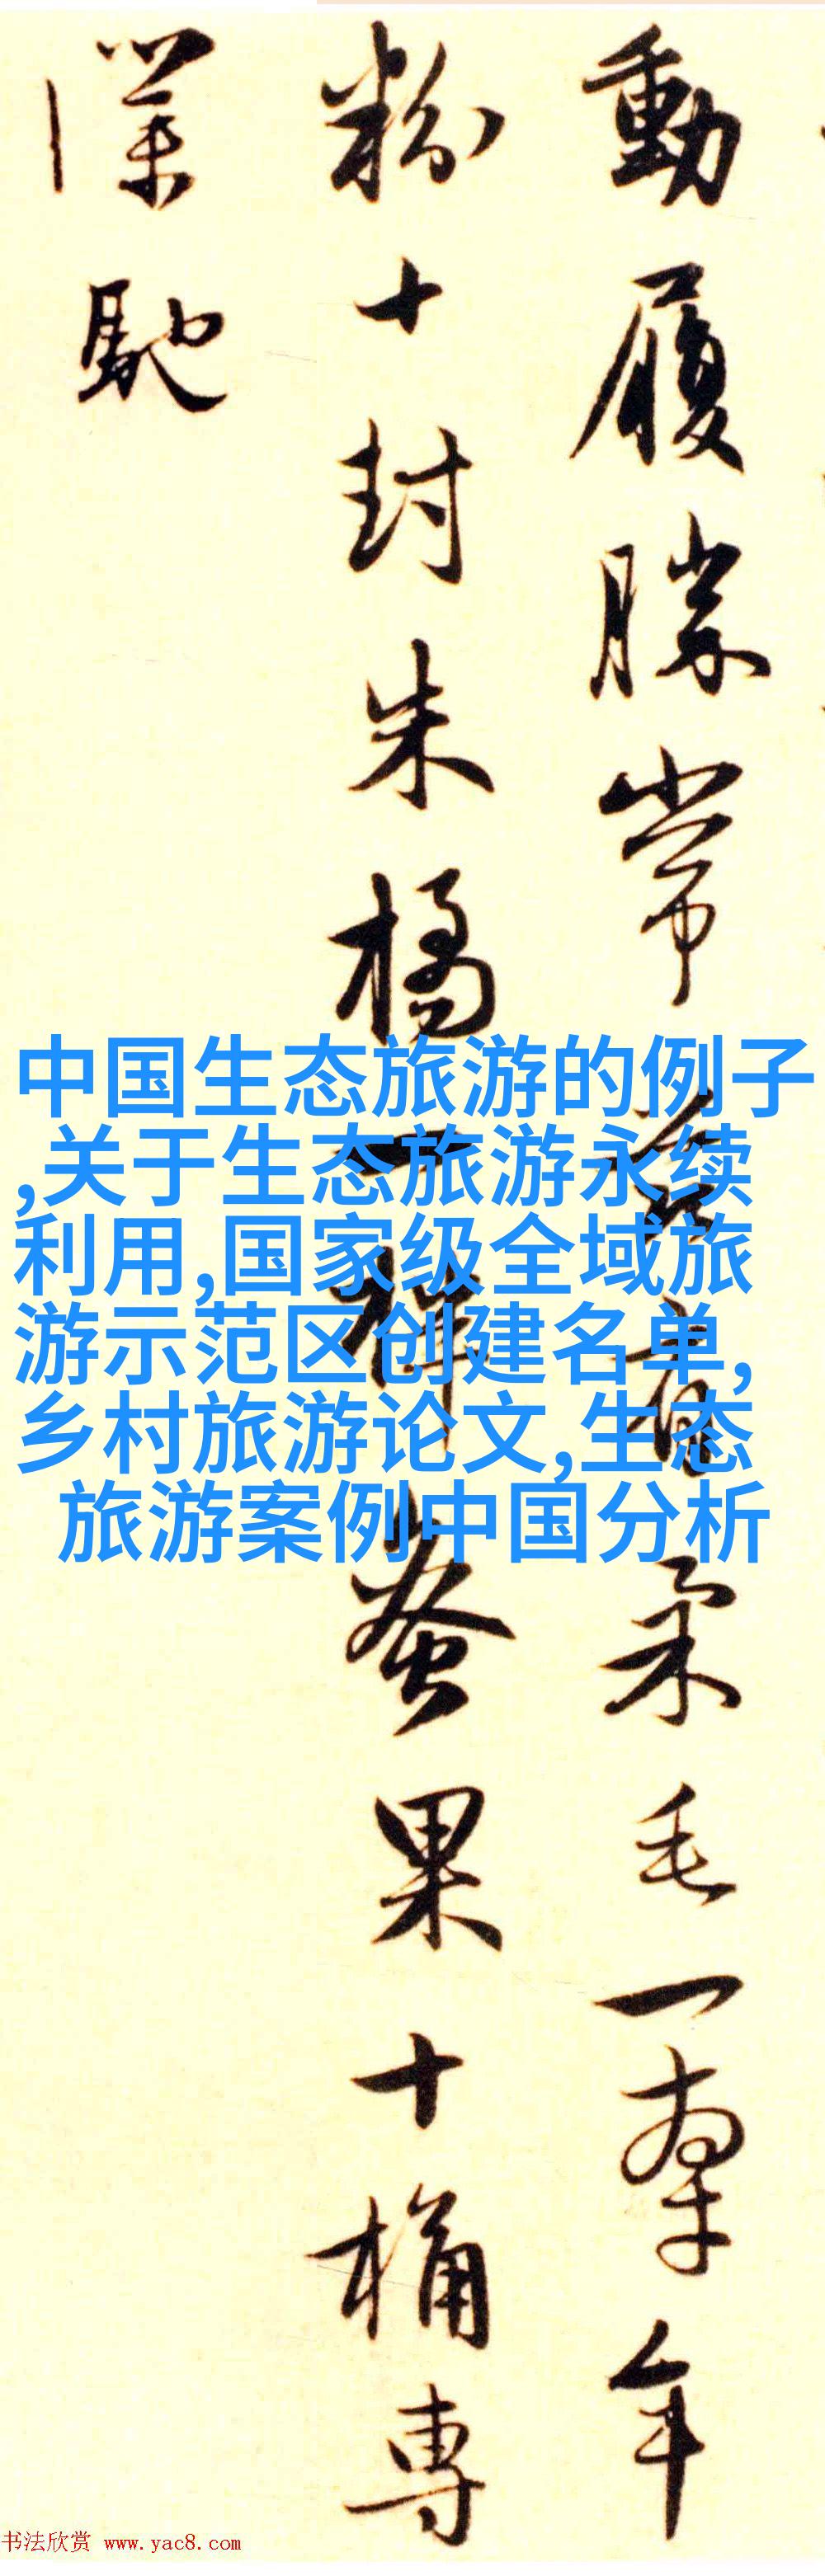 動履勝常 羔有柔毛一牽年
粉十封朱橘
蚕果十桶專
僕馳
中国生态旅游的例子
,关于生态旅游永续
利用,国家级全域旅
游示范区创建名单,
乡村旅游论文,生态
旅游案例中国分析
书法欣赏 www.yac8.com